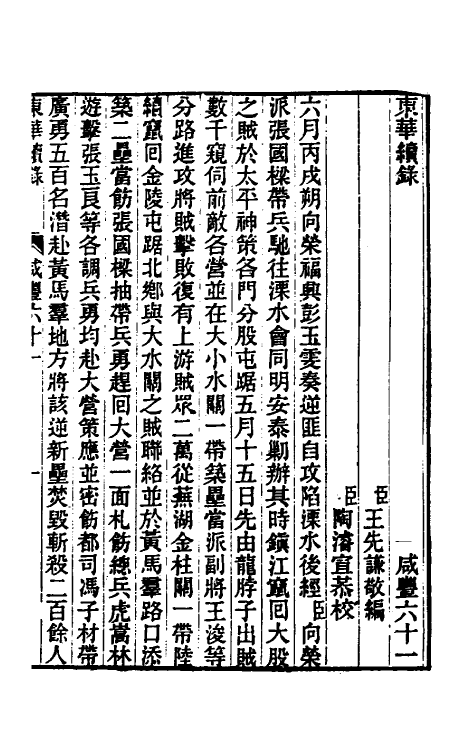 東華續錄　咸豐六十一
臣王先謙敬編
臣陶濬宣恭校
六月丙戌朔向榮福興彭玉雯奏逆匪自攻陷溧水後經臣向榮
派張國樑帶兵馳往溧水會同明安泰勦辦其時鎮江竄回大股
之賊於太平神策各門分股屯踞五月十五日先由龍脖子出賊
數千窺伺前敵各營並在大小水關一帶築壘當派副將王浚等
分路進攻將賊擊敗復有上游賊眾二萬從蕪湖金柱關一帶陸
續竄回金陵屯踞北鄉與大水關之賊聯絡並於黃馬羣路口添
築二壘當飭張國樑抽帶兵勇趕回大營一面札飭總兵虎嵩林
遊擊張玉良等各調兵勇均赴大營策應並密飭都司馮子材帶
廣勇五百名潛赴黃馬羣地方將該逆新壘焚毀斬殺二百餘人
東華續錄　咸豐六十一　一